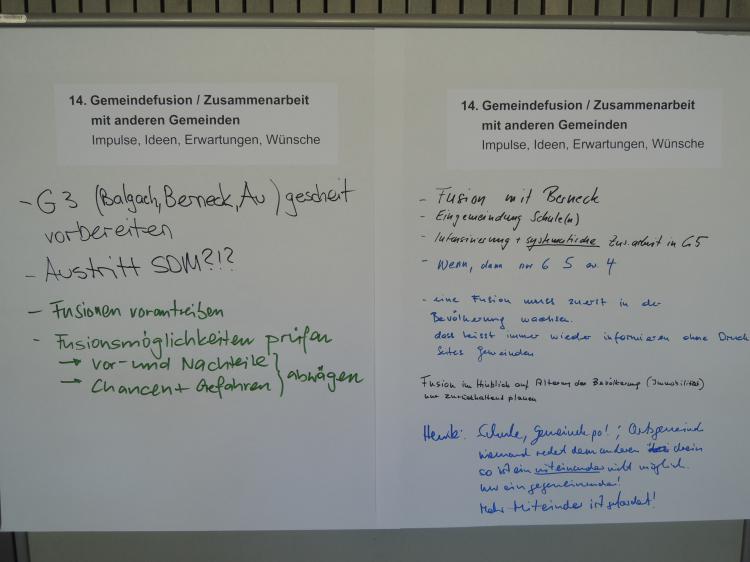 14. Gemeindefusion / Zusammenarbeit
mit anderen Gemeinden
Impulse, Ideen, Erwartungen, Wünsche
- G3 (Balgach, Berneck, Au) gescheit
vorbereiten
- Austritt SDM?!?
- Fusionen vorantreiben
- Fusionsmöglichkeiten prüfen
→ Vor- und Nachteile
→ Chancen + Gefahren } abwägen
14. Gemeindefusion / Zusammenarbeit
mit anderen Gemeinden
Impulse, Ideen, Erwartungen, Wünsche
- Fusion mit Berneck
- Eingemeindung Schule(n)
- Intensivierung + systematische Zus.arbeit in G5
- Wenn, dann nur G 5 od. 4
- eine Fusion muss zuerst in der
Bevölkerung wachsen.
dass heisst immer wieder informieren ohne Druck
seites Gemeinden
Fusion im Hinblick auf Alterung der Bevölkerung (Immobilität)
nur zurückhaltend planen
Heute: Schule, Gemeinde pol.; Ortsgemeind
niemand redet dem anderen drein
so ist ein miteinander nicht möglich.
nur ein gegeneinander!
Mehr Miteinder ist gefordert!